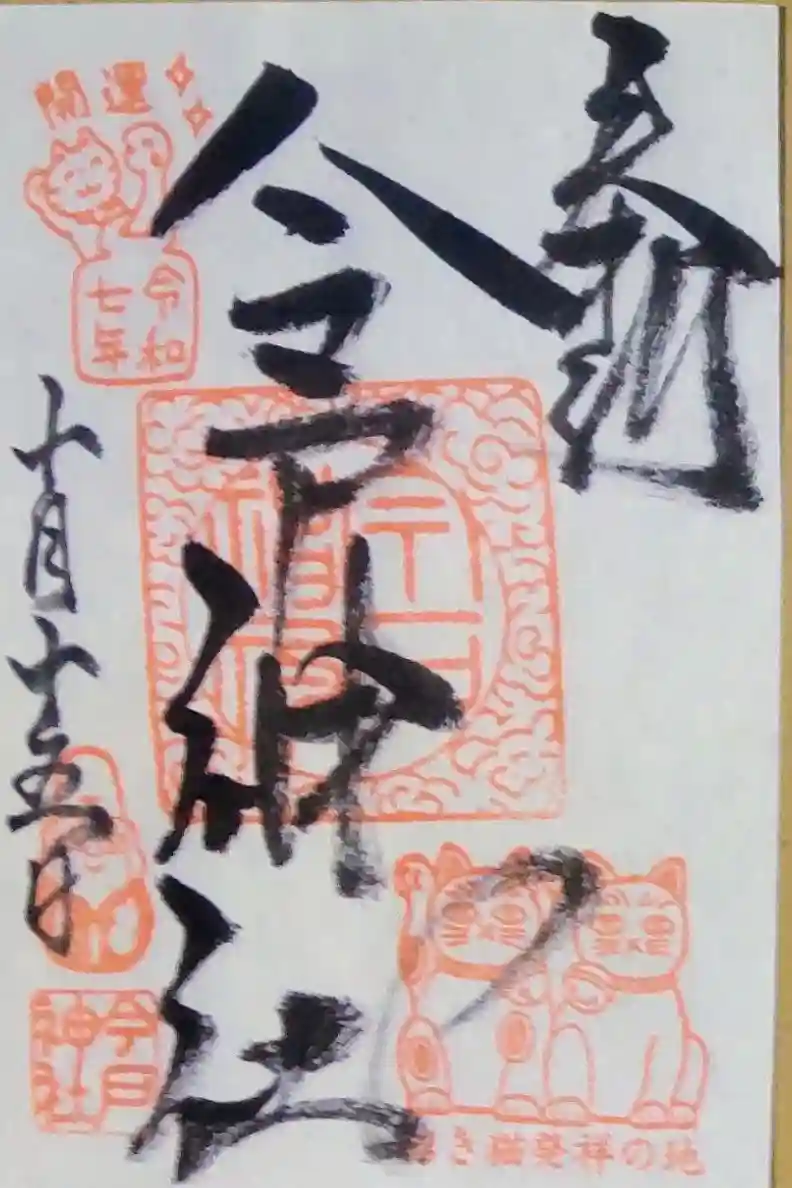 奉拝
今戸神社
開運
令和
七年
十月十五日
今戸
神社
招き猫発祥の地